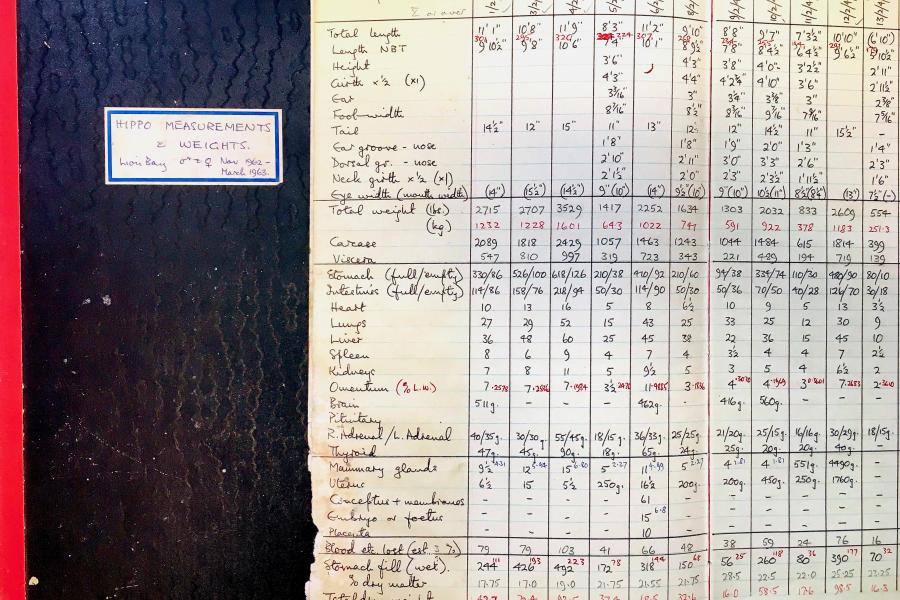 HIPPO MEASUREMENTS
& WEIGHTS.
Lion Bay ♂ & ♀ Nov 1962 –
March 1963.
Total length 11'1" 10'8" 11'9" 8'3" 11'2" 9'10" 8'8" 9'7" 7'3½" 10'10" (6'10")
Length NBT 9'10½" 9'8" 10'6" 7'4" 10'1" 8'9½" 7'8" 8'4½" 6'4½" 9'6½" 5'10½"
Height 3'6" 4'3" 3'8" 4'0" 3'2½" 2'11"
Girth x½ (x1) 4'3" 4'4" 4'2¾" 4'10" 3'6" 2'11½"
Ear 3³/₁₆" 3" 3¼" 3⅜" 3" 2⅞"
Foot-width 8³/₁₆" 8½" 8³/₁₆" 9¹/₁₆" 7⁵/₁₆"
Tail 14½" 12" 15" 11" 13" 12" 12" 14½" 11" 15½" –
Ear groove - nose 1'8" 1'8" 1'9" 2'0" 1'3" 1'4"
Dorsal gr. - nose 2'10" 2'11" 3'0" 3'3" 2'6" 2'3"
Neck girth x½ (x1) 2'1½" 2'0" 2'3" 2'3½" 1'11½" 1'6"
Eye width (mouth width) (14") (15½") (14½") 9"(10") (14") 9½"(10") 9"(10") 10½(11") 8½"(8¾") (13") 7½"(–)
Total weight (lbs.) 2715 2707 3529 1417 2252 1634 1303 2032 833 2609 554
(kg) 1232 1228 1601 643 1022 741 591 922 378 1183 251.3
Carcase 2089 1818 2429 1057 1463 1243 1044 1484 615 1814 399
Viscera 547 810 997 319 723 343 221 489 194 719 139
Stomach (full/empty) 330/86 526/100 618/126 210/38 410/92 210/60 94/38 334/74 110/30 480/90 80/10
Intestines (full/empty) 114/86 158/76 218/94 50/30 114/90 50/30 50/36 70/50 40/28 126/70 30/18
Heart 10 13 16 5 8 6½ 10 9 5 13 3½
Lungs 27 29 52 15 43 25 33 25 12 30 9
Liver 36 48 60 25 45 38 22 36 15 45 10
Spleen 8 6 9 4 7 4 3½ 4 4 7 2½
Kidneys 7 8 11 5 9½ 5 3 5 4 6½ 2
Omentum (% L.W.) 7 ·2578 7 7 ·1984 3½ ·2470 11 3 4 4 3 7 2
Brain 511g. – – – 462g. – 416g. 560g. – – –
Pituitary
R.Adrenal/L.Adrenal 40/35g. 30/30g. 55/45g. 18/15g. 36/33g. 25/25g. 21/20g. 25/15g. 16/16g. 30/29g. 18/15g.
Thyroid 47g. 45g. 90g. 18g. 65g. 24g. 25g. 20g. 20g. 40g. –
Mammary glands 9½ 12 15 5 11 5 4 4 551g. 4490g. –
Uterus 6½ 15 5½ 250g. 16½ 200g. 200g. 450g. 250g. 1760g. –
Conceptus + membranes – – – – 61 – – – – – –
Embryo or foetus – – – – 15 6·8 – – – – – –
Placenta – – – – 10 – – – – – –
Blood etc. lost (est. 3 %) 79 79 103 41 66 48 38 59 24 76 16
Stomach fill (wet). 244 111 426 193 492 223 172 78 318 144 150 68 56 25 260 118 80 36 390 177 70 32
% dry matter 17.75 17.0 19.0 21.75 21.55 21.75 28.5 22.5 22.0 25.25 23.25
Total dry weight